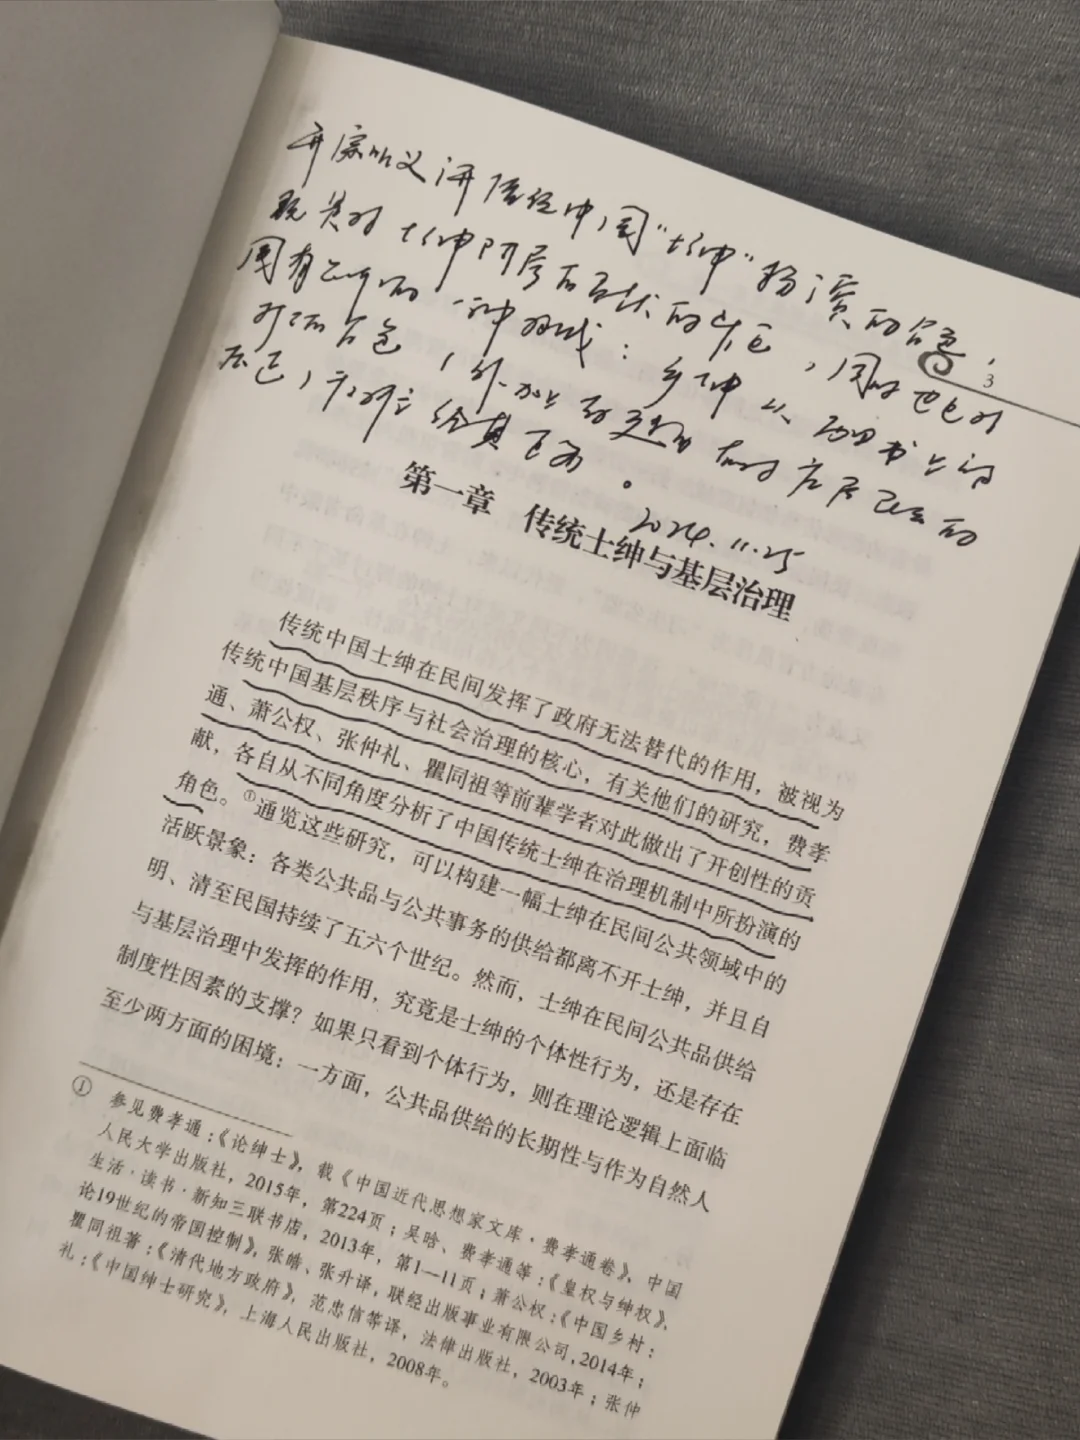 开宗明义讲传统中国"士绅"扮演的角色，
3
2024.11.25
第一章 传统士绅与基层治理
传统中国士绅在民间发挥了政府无法替代的作用，被视为
传统中国基层秩序与社会治理的核心，有关他们的研究，费孝
通、萧公权、张仲礼、瞿同祖等前辈学者对此做出了开创性的贡
献，各自从不同角度分析了中国传统士绅在治理机制中所扮演的
角色。①通览这些研究，可以构建一幅士绅在民间公共领域中的
活跃景象：各类公共品与公共事务的供给都离不开士绅，并且自
明、清至民国持续了五六个世纪。然而，士绅在民间公共品供给
与基层治理中发挥的作用，究竟是士绅的个体性行为，还是存在
制度性因素的支撑？如果只看到个体行为，则在理论逻辑上面临
至少两方面的困境：一方面，公共品供给的长期性与作为自然人
① 参见费孝通：《论绅士》，载《中国近代思想家文库·费孝通卷》，中国
人民大学出版社，2015年，第224页；吴晗、费孝通等：《皇权与绅权》，
生活·读书·新知三联书店，2013年，第1—11页；萧公权：《中国乡村：
论19世纪的帝国控制》，张皓、张升译，联经出版事业有限公司，2014年；
瞿同祖著：《清代地方政府》，范忠信等译，法律出版社，2003年；张仲
礼：《中国绅士研究》，上海人民出版社，2008年。